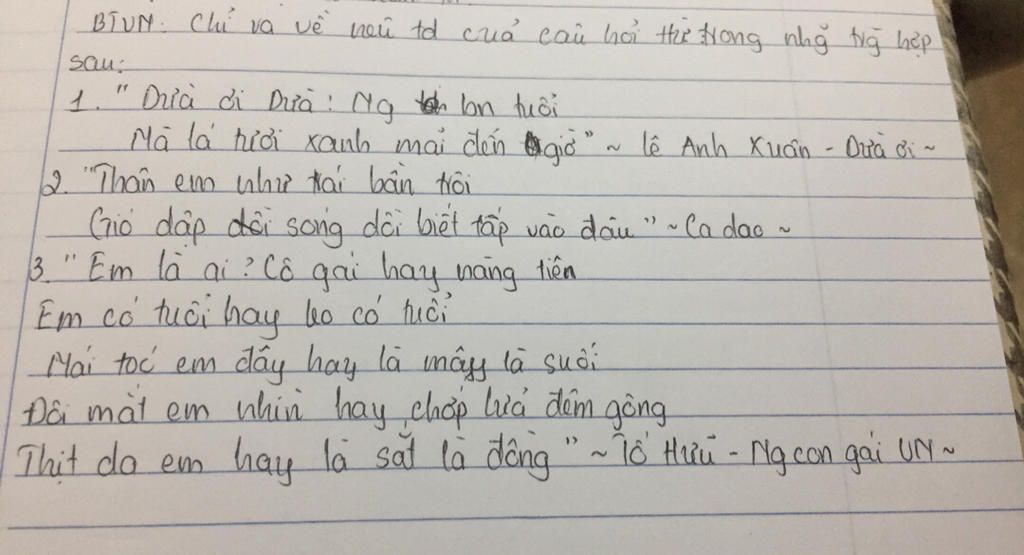 BTVN: Chỉ va và về nêu td cuả câu hỏi từ trong nhg̃ trg̃ hợp
sau:
1. " Dừa ơi Dừa ! Ng bn tuổi
Mà lá tươi xanh mãi đến giờ " ~ Lê Anh Xuân - Dừa ơi ~
2. "Thân em như trái bần trôi
Gió dập sóng dồi biết tấp vào đâu " ~ Ca dao ~
3. " Em là ai ? Cô gái hay nàng tiên
Em có tuổi hay ko có tuổi
Mái tóc em đây hay là mây là suối
Đôi mắt em nhìn hay chớp lửa đêm gông
Thịt da em hay là sắt là đồng " ~ Tố Hữu - Ng con gái VN ~